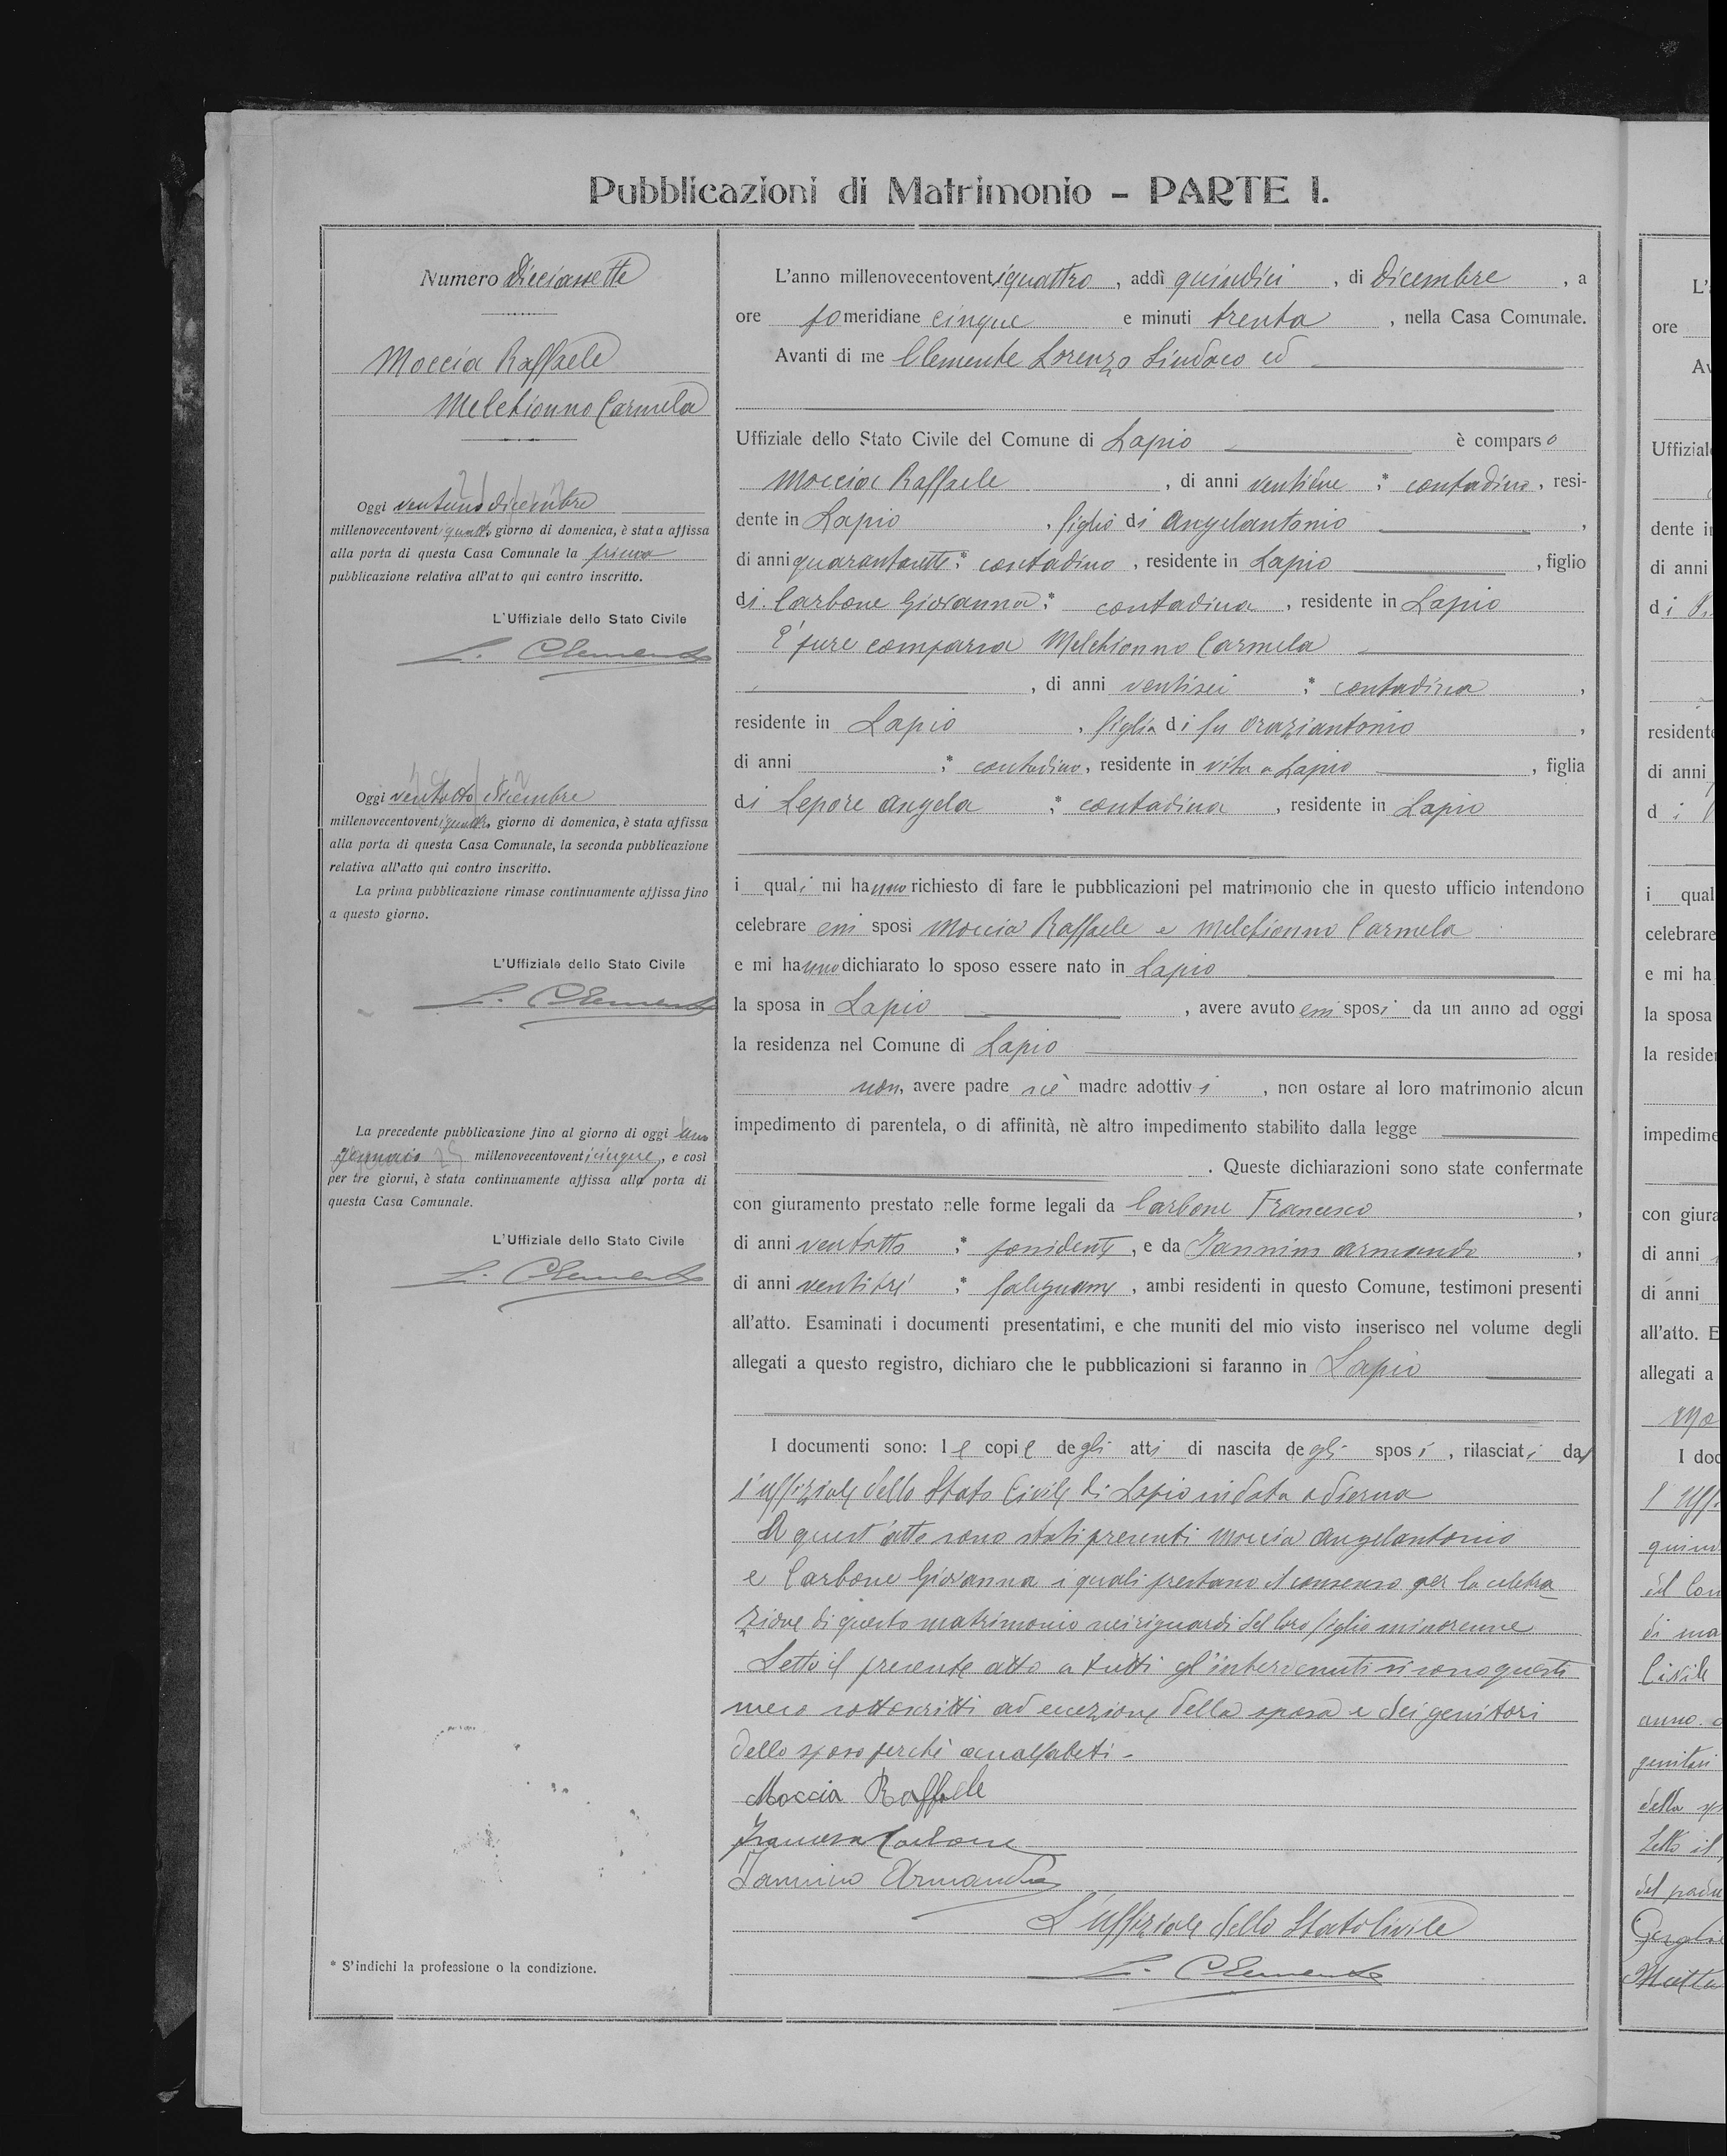 Pubblicazioni di Matrimonio - PARTE I.
Numero Diciassette
Moccia Raffaele
Melchionno Carmela
Oggi ventuno dicembre
millenovecentoventiquattro giorno di domenica, è stata affissa
alla porta di questa Casa Comunale la prima
pubblicazione relativa all'atto qui contro inscritto.
L'Uffiziale dello Stato Civile
L. Clemente
Oggi ventotto dicembre
millenovecentoventiquattro giorno di domenica, è stata affissa
alla porta di questa Casa Comunale, la seconda pubblicazione
relativa all'atto qui contro inscritto.
La prima pubblicazione rimase continuamente affissa fino
a questo giorno.
L'Uffiziale dello Stato Civile
L. Clemente
La precedente pubblicazione fino al giorno di oggi uno
gennaio millenovecentoventicinque, e così
per tre giorni, è stata continuamente affissa alla porta di
questa Casa Comunale.
L'Uffiziale dello Stato Civile
L. Clemente
* S'indichi la professione o la condizione.
L'anno millenovecentoventiquattro, addì quindici, di Dicembre, a
ore pomeridiane cinque e minuti trenta, nella Casa Comunale.
Avanti di me Clemente Lorenzo Sindaco ed
Uffiziale dello Stato Civile del Comune di Lapio è comparso
Moccia Raffaele, di anni * contadino, resi-
dente in Lapio, figlio di Angelantonio,
di anni quarantasette * contadino, residente in Lapio, figlio
di Carbone Giovanna * contadina, residente in Lapio
E' pure comparsa Melchionno Carmela
, di anni ventisei * contadina,
residente in Lapio, figlia di fu Oraziantonio,
di anni * contadino, residente in vita a Lapio, figlia
di Lepore Angela * contadina, residente in Lapio
i quali mi hanno richiesto di fare le pubblicazioni pel matrimonio che in questo ufficio intendono
celebrare essi sposi Moccia Raffaele e Melchionno Carmela
e mi hanno dichiarato lo sposo essere nato in Lapio
la sposa in Lapio, avere avuto essi sposi da un anno ad oggi
la residenza nel Comune di Lapio
non, avere padre nè madre adottivi, non ostare al loro matrimonio alcun
impedimento di parentela, o di affinità, nè altro impedimento stabilito dalla legge
. Queste dichiarazioni sono state confermate
con giuramento prestato nelle forme legali da Carbone Francesco,
di anni ventotto * possidente, e da Iannino Armando,
di anni ventitré * falegname, ambi residenti in questo Comune, testimoni presenti
all'atto. Esaminati i documenti presentatimi, e che muniti del mio visto inserisco nel volume degli
allegati a questo registro, dichiaro che le pubblicazioni si faranno in Lapio
I documenti sono: le copie degli atti di nascita degli sposi, rilasciati dal
l'uffiziale dello Stato Civile di Lapio in data odierna
A quest'atto sono stati presenti Moccia Angelantonio
e Carbone Giovanna i quali prestano il consenso per la celebra
zione di questo matrimonio nei riguardi del loro figlio minorenne
Letto il presente atto a tutti gl'intervenuti si sono questi
meco sottoscritti ad eccezione della sposa e dei genitori
dello sposo perchè analfabeti.
Moccia Raffaele
Francesco Carbone
Iannino Armando
L'Uffiziale dello Stato Civile
L. Clemente
L'
ore
Av
Uffizial
dente i
di anni
di
residente
di anni
di
i qual
celebrare
e mi ha
la sposa
la reside
impedime
con giura
di anni
di anni
all'atto. E
allegati a
I doc